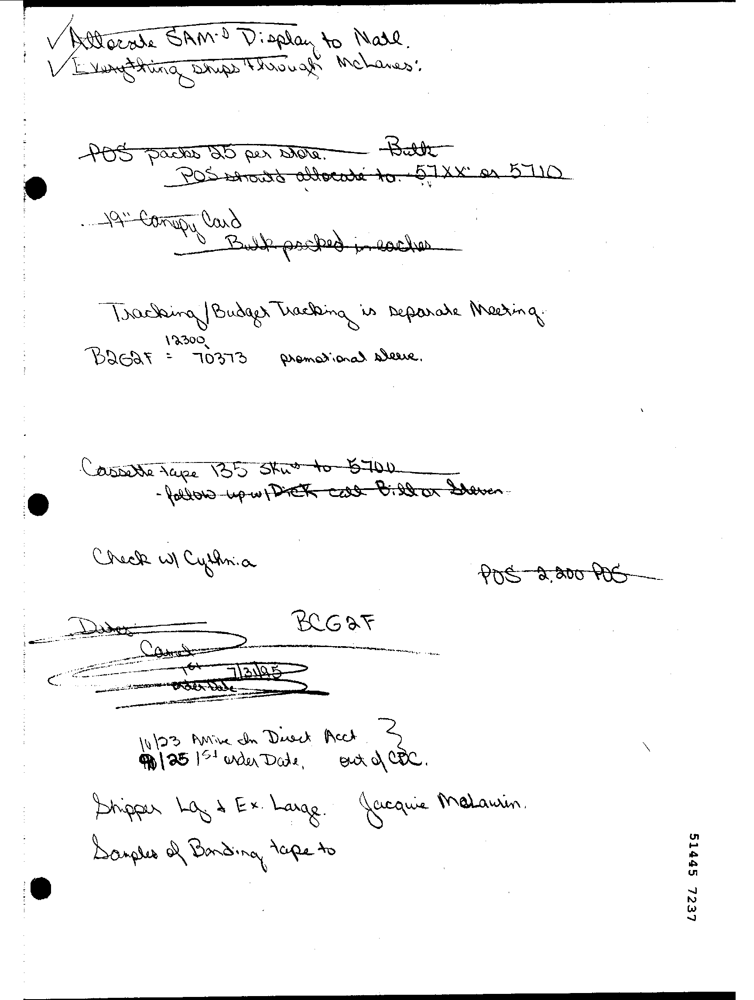 ✓ Allocate SAM's Display to Nate.
✓ Everything ships through McLanes:
POS packs 25 per store. Bulk
POS should allocate to. 57XX" or 5710
19" Canopy Card
Bulk packed in eaches
Tracking/Budget Tracking is separate Meeting.
12300
B2G2F = 70373 promotional sleeve.
Cassette tape 135 SKU's to 5700
- follow up w/ Dick call Bill or Steven
Check w/ Cythnia
POS 2,200 POS
Dates
BCG2F
Camel
1st 7/31/95
order date
10/23 Arrive in Direct Acct.
/25 1st order Date. out of CDC.
Shipper Lg & Ex. Large. Jacquie McLaurin.
Samples of Banding tape to
51445 7237